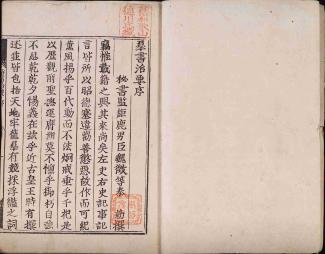 群書治要序
秘書監鉅鹿男臣魏徵等奉　勑撰
竊惟載籍之興其來尚矣左史右史記事記
言皆所以昭德塞違勸善懲惡故作而可紀
薫風揚乎百代動而不法炯戒垂乎千祀是
以歷觀前聖撫運膺期莫不懍乎御朽自強
不息乾乾夕惕義在茲乎近古皇王時有撰
述並皆包括天地牢籠羣有競採浮艷之詞